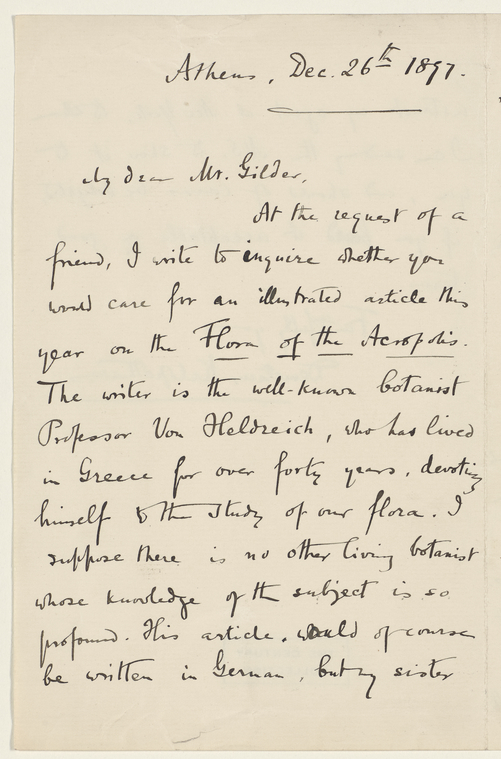 Athens, Dec. 26th 1897.
My dear Mr. Gilder,
At the request of a
friend, I write to inquire whether you
would care for an illustrated article this
year on the Flora of the Acropolis.
The writer is the well-known botanist
Professor Von Heldreich, who has lived
in Greece for over forty years, devoting
himself to the study of our flora. I
suppose there is no other living botanist
whose knowledge of the subject is so
profound. His article, would of course
be written in German, but my sister